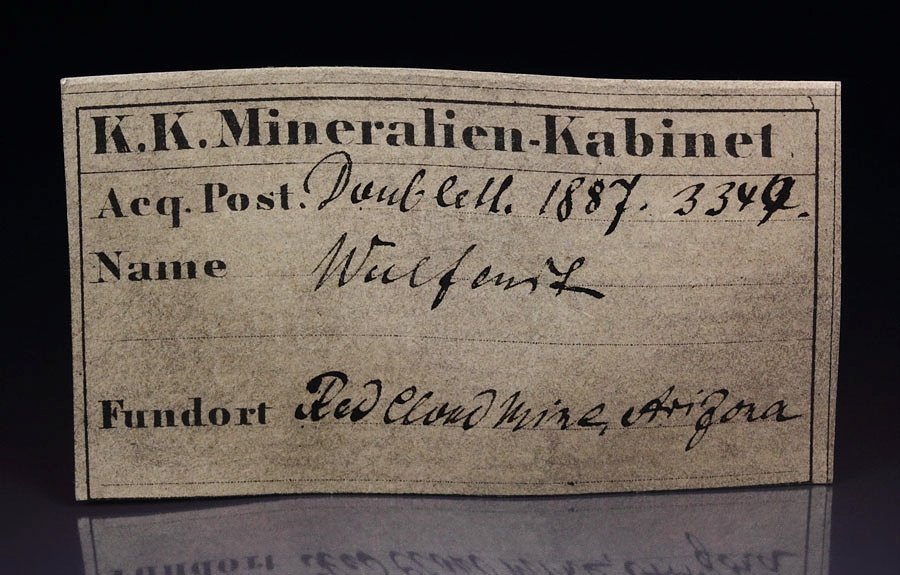 K.K. Mineralien-Kabinet
Acq. Post. Doublett. 1887. 3349.
Name Wulfenit
Fundort Red Cloud Mine, Arizona